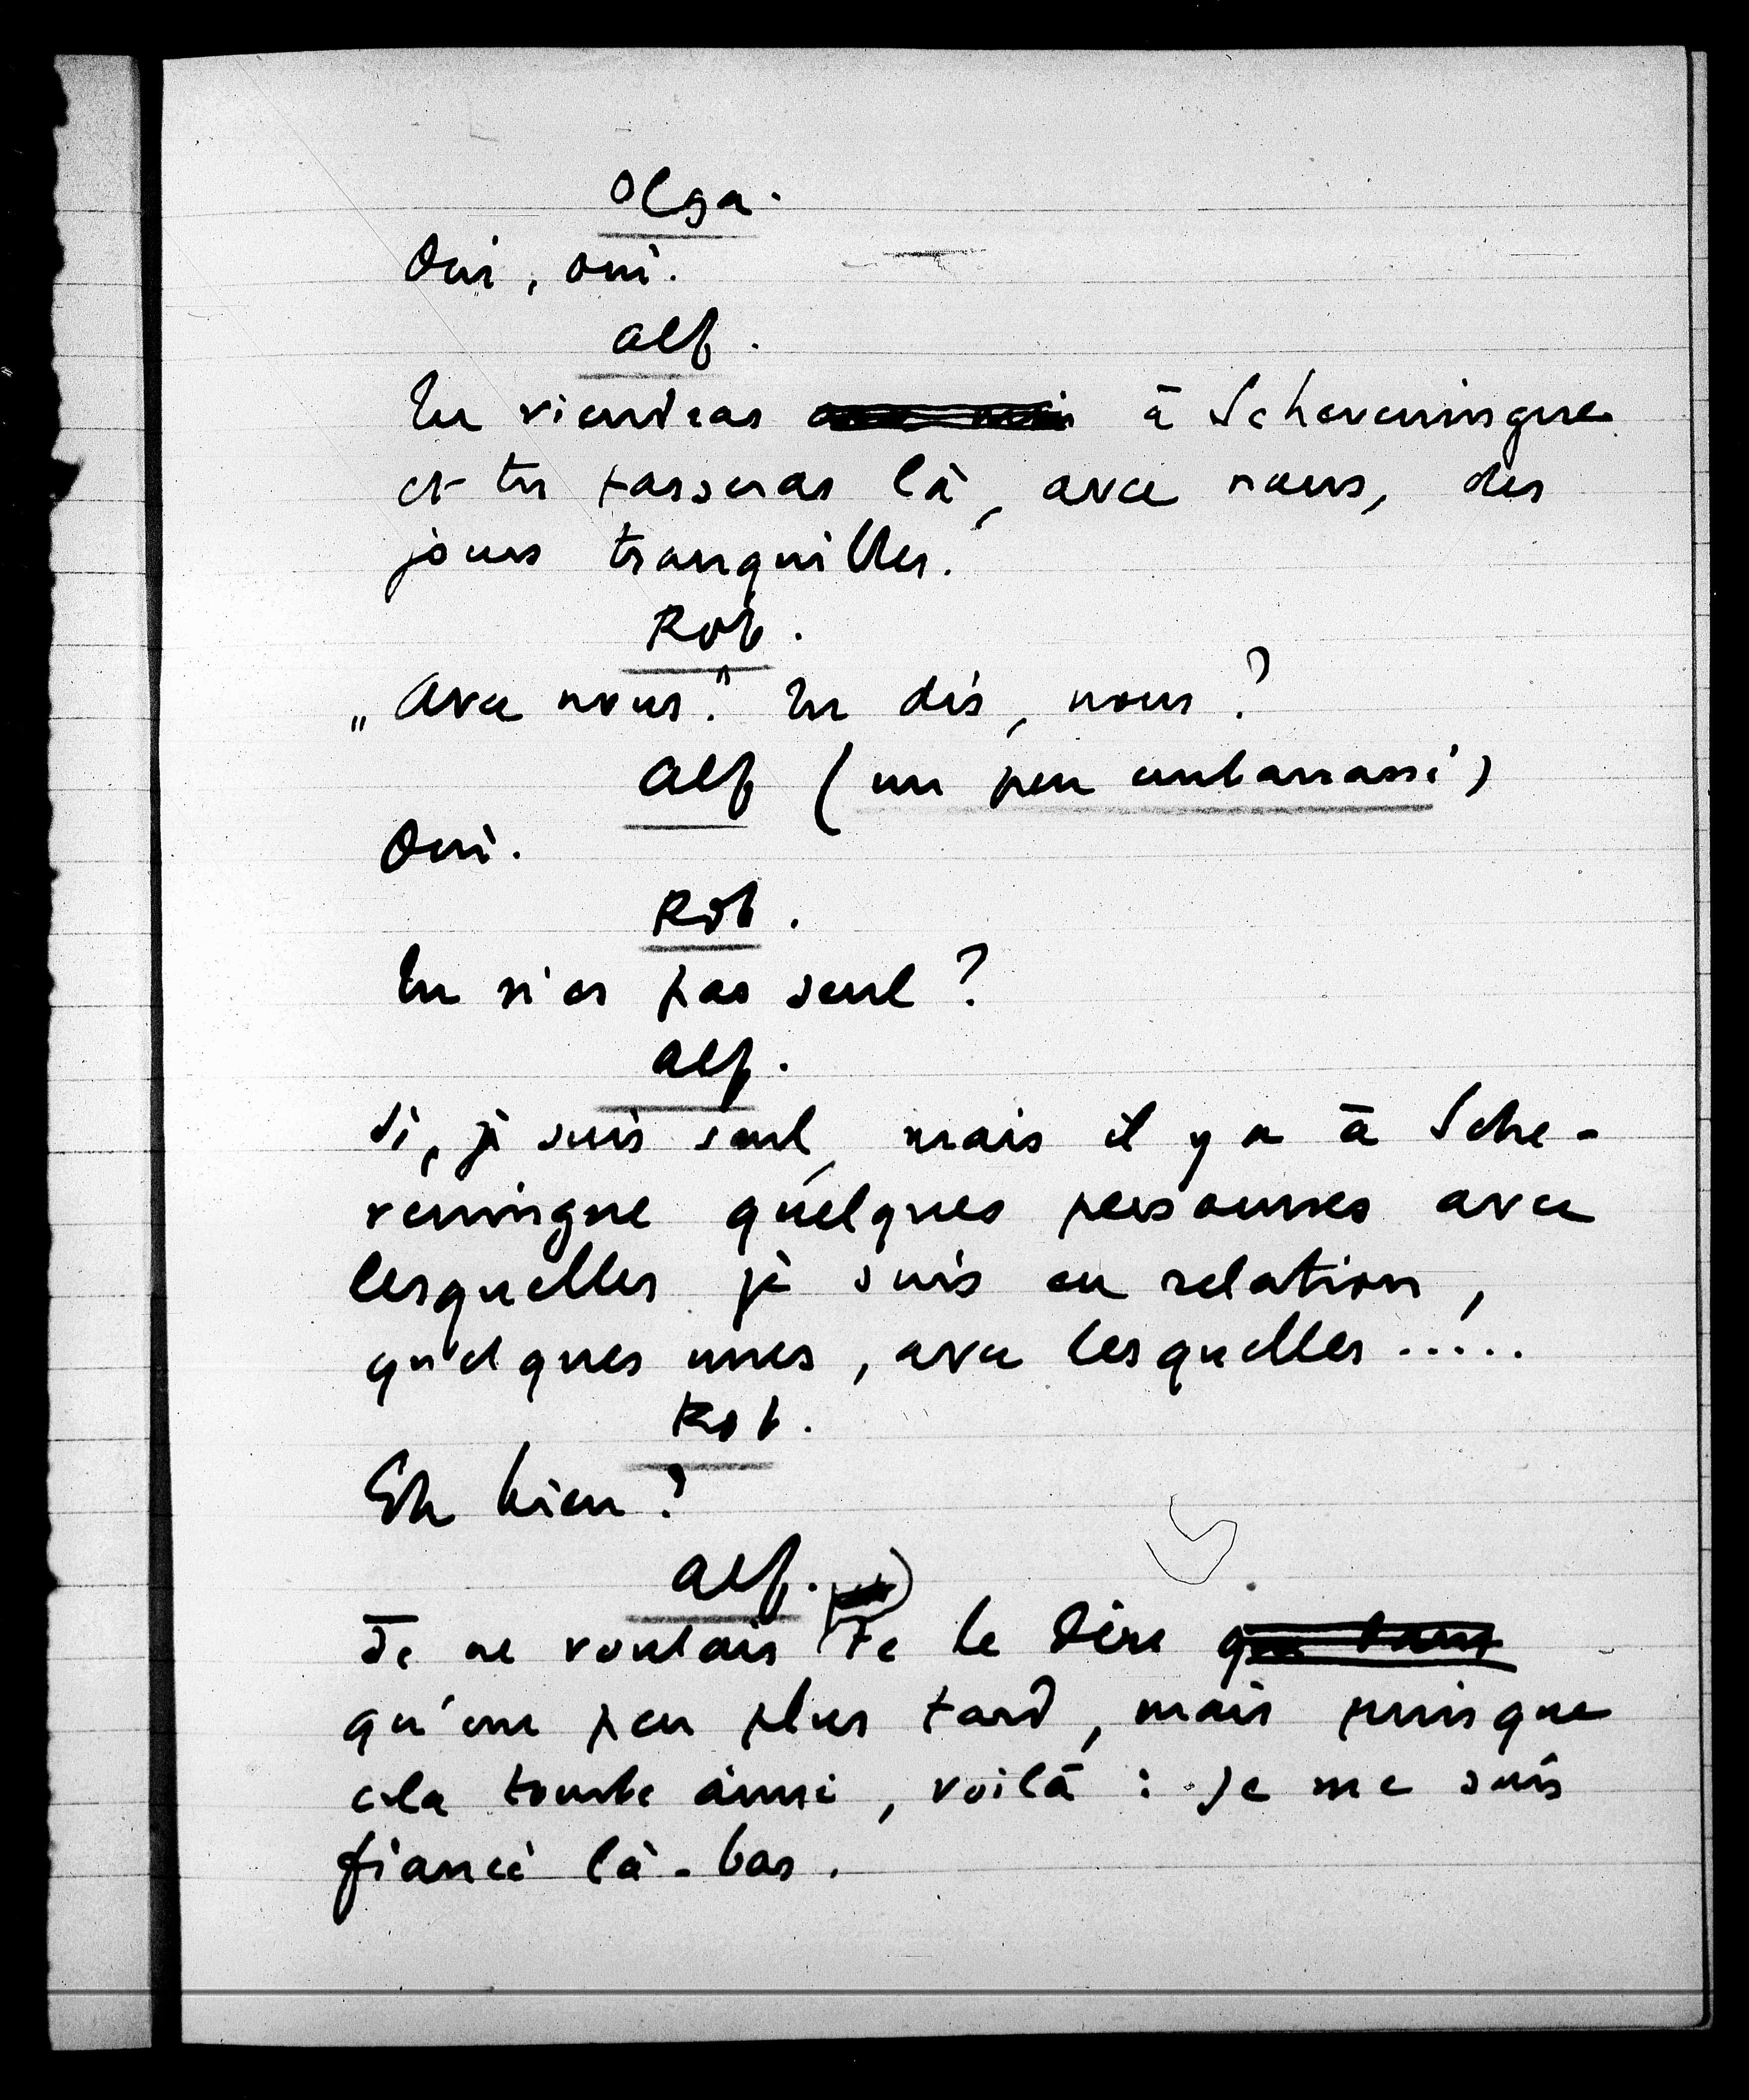 Olga.
Oui, oui.
Alf.
Tu viendras à Scheveningue
et tu passeras là, avec nous, des
jours tranquilles.
Rob.
„Avec nous." Tu dis, nous?
Alf (un peu embarrassé)
Oui.
Rob.
Tu n'es pas seul?
Alf.
Si, je suis seul, mais il y a à Sche-
veningue quelques personnes avec
lesquelles je suis en relation,
quelques unes, avec lesquelles .....
Rob.
Eh bien?
Alf.
Je ne voulais te le dire
qu'un peu plus tard, mais puisque
cela tombe ainsi, voilà: Je me suis
fiancé là-bas.